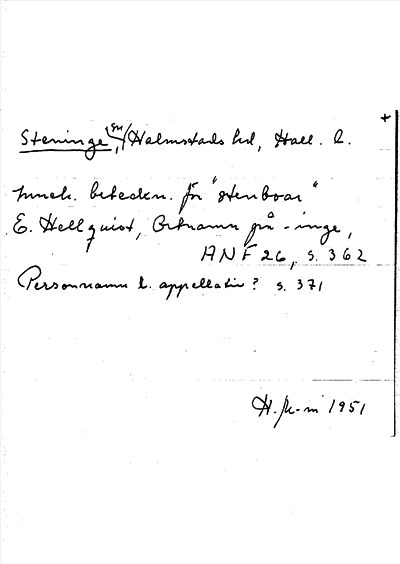 +
Steninge, sn, Halmstads hd, Hall. l.
beteckn. för "stenboar"
E. Hellquist, Ortnamn på -inge,
ANF 26, s. 362
Personnamn l. appellativ? s. 371
1951